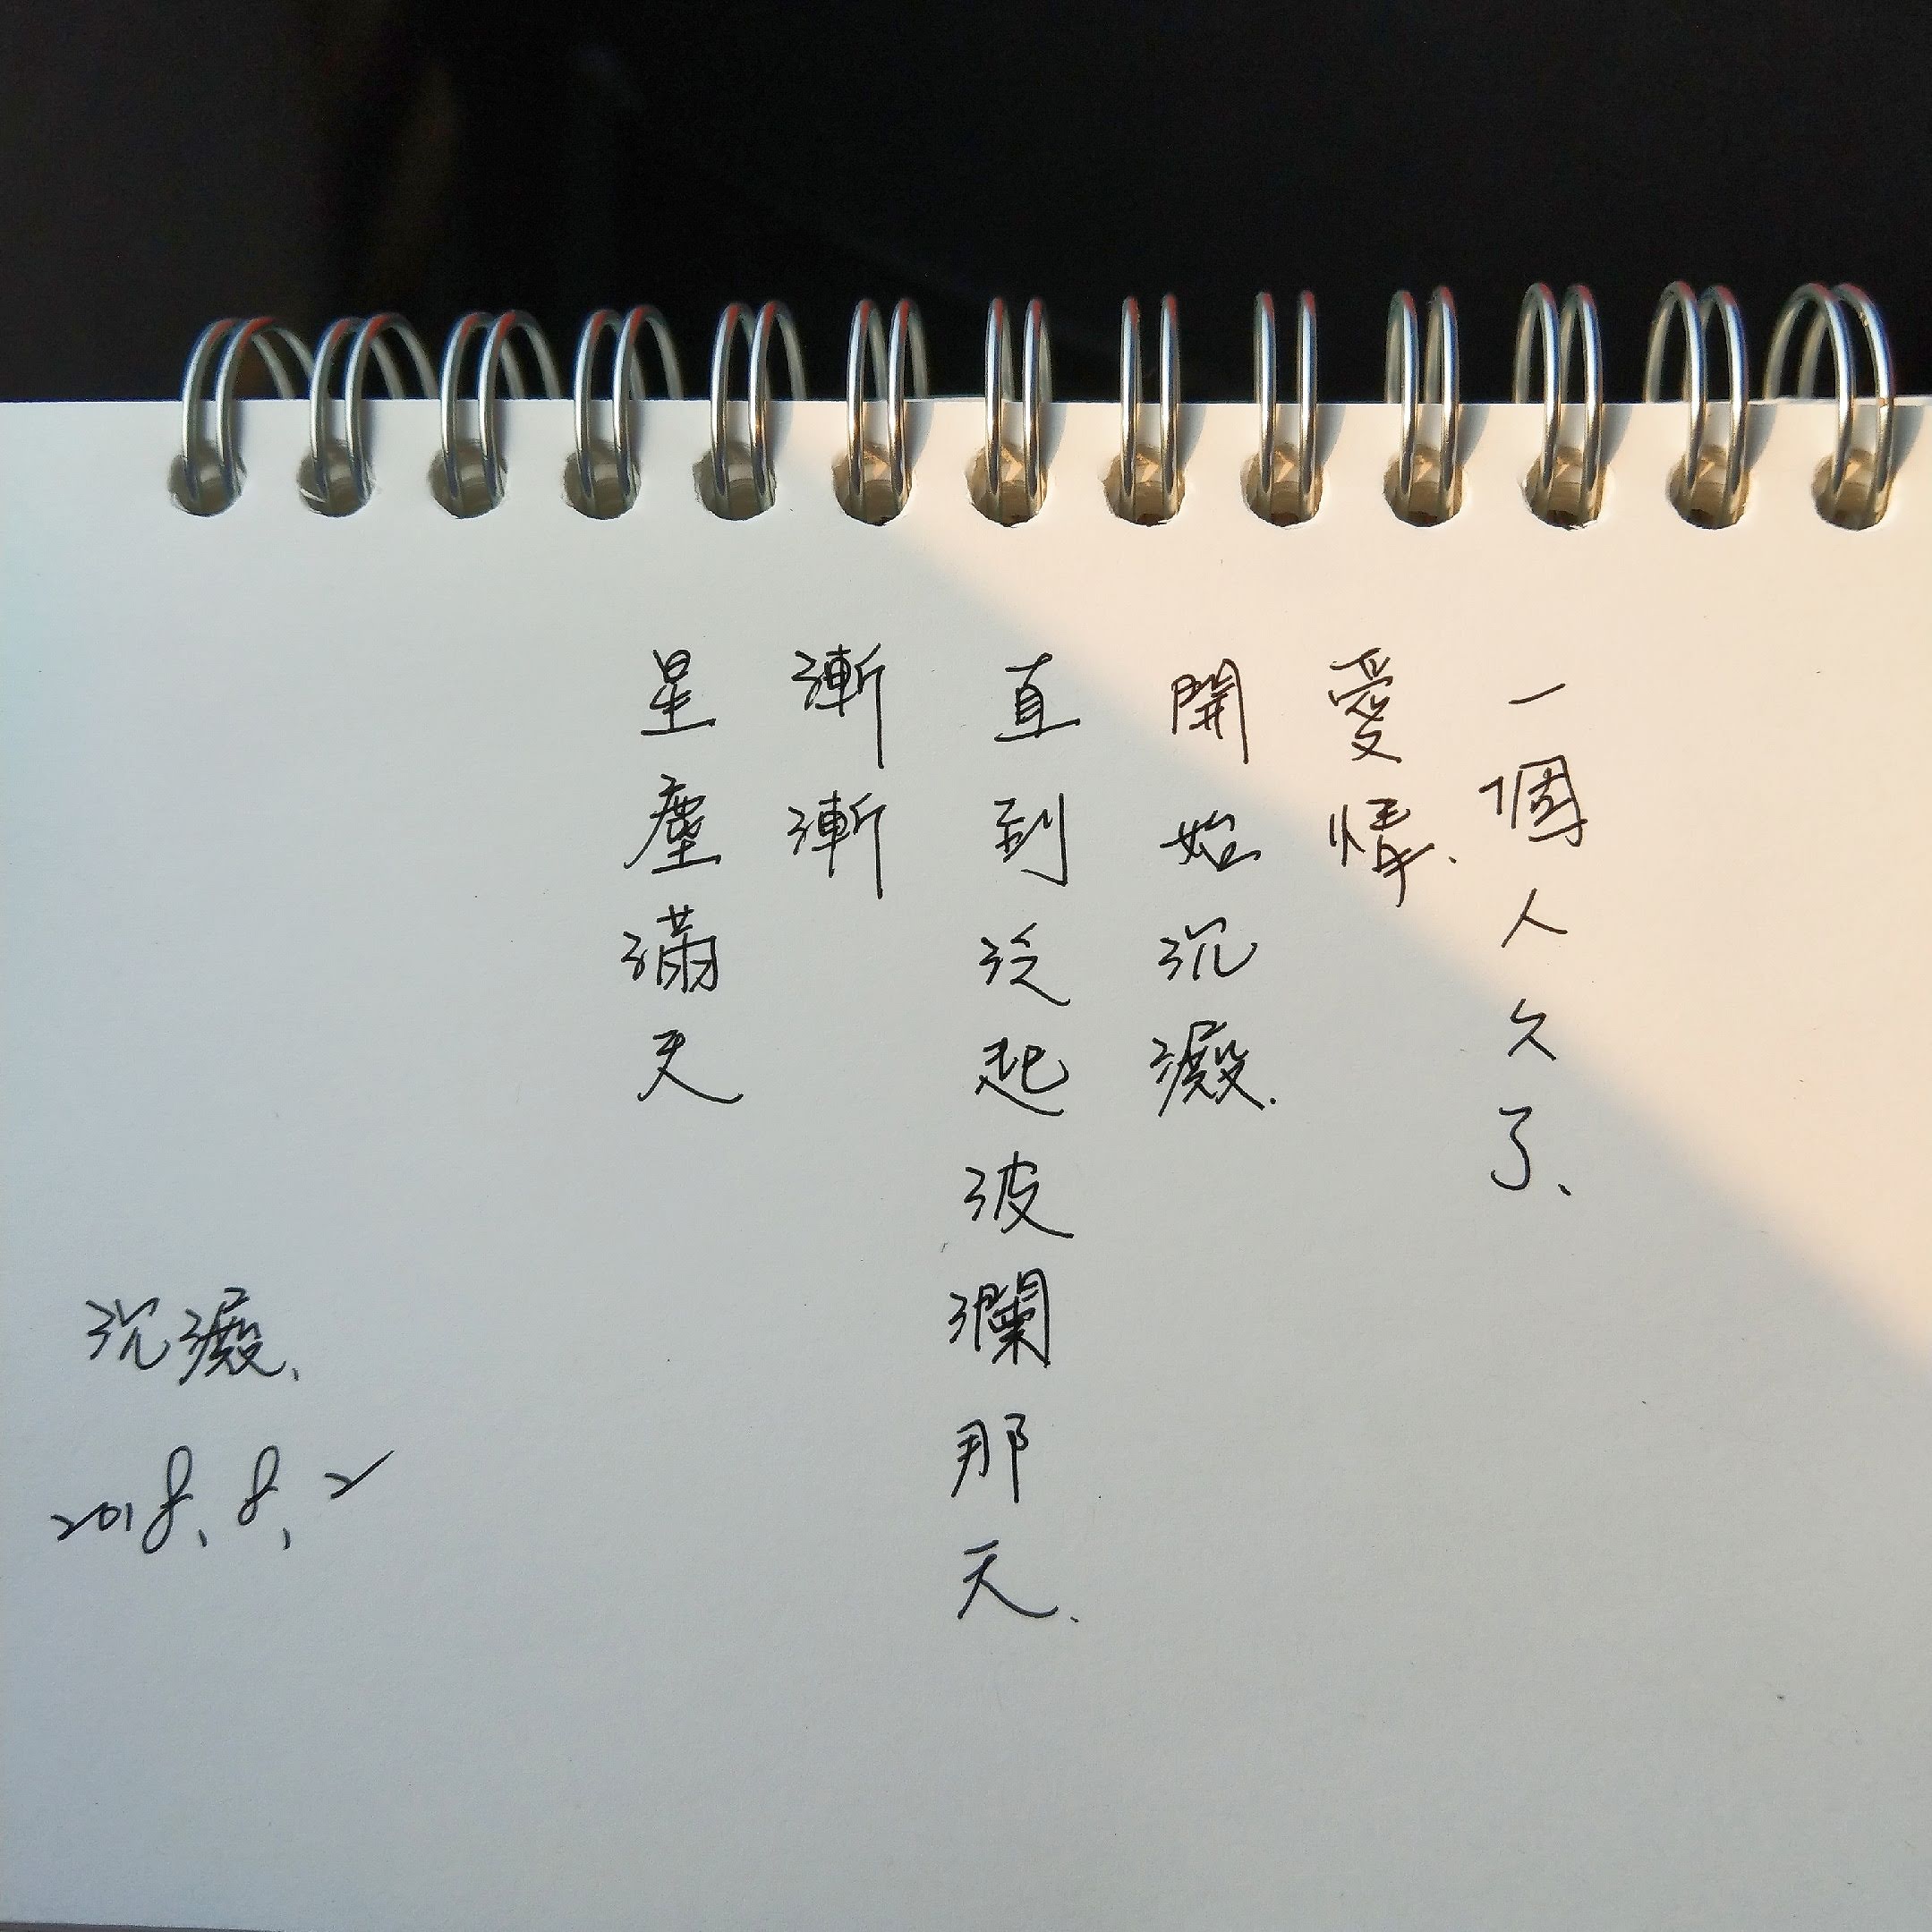 一個人久了、
愛情.
開始沉澱.
直到泛起波瀾那天.
漸漸
星塵滿天
沉澱、
2018、8、2